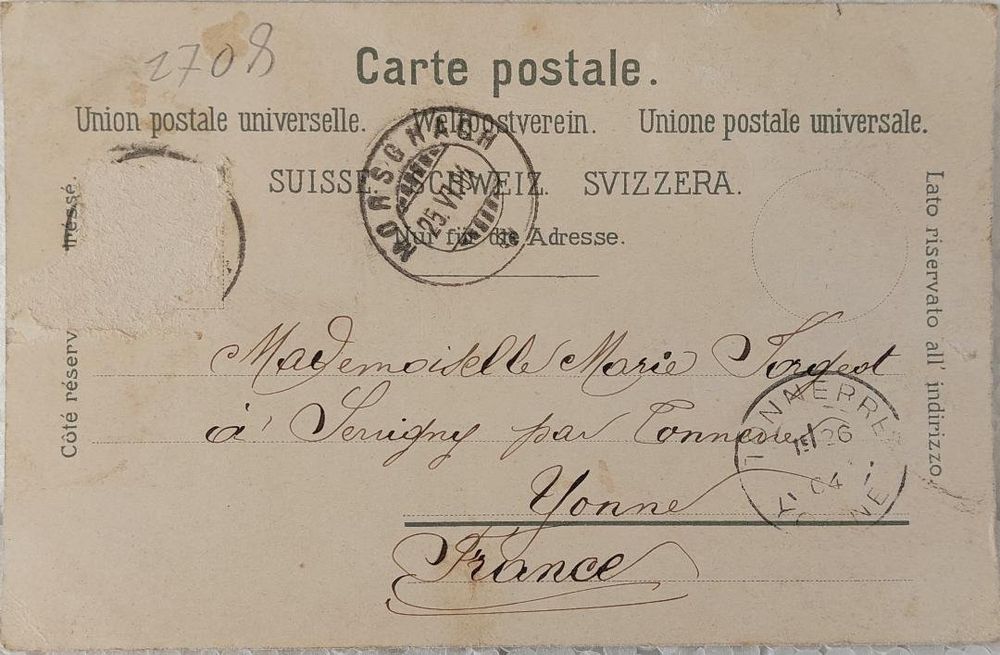 2708
Carte postale.
Union postale universelle. Weltpostverein. Unione postale universale.
SUISSE. SCHWEIZ. SVIZZERA.
Nur für die Adresse.
Côté réserv
resse.
Lato riservato all' indirizzo.
MORSCHACH
25.VI
Mademoiselle Marie Forgeot
à Serrigny par Tonnerre
Yonne
France
TONNERRE
26
04
YONNE